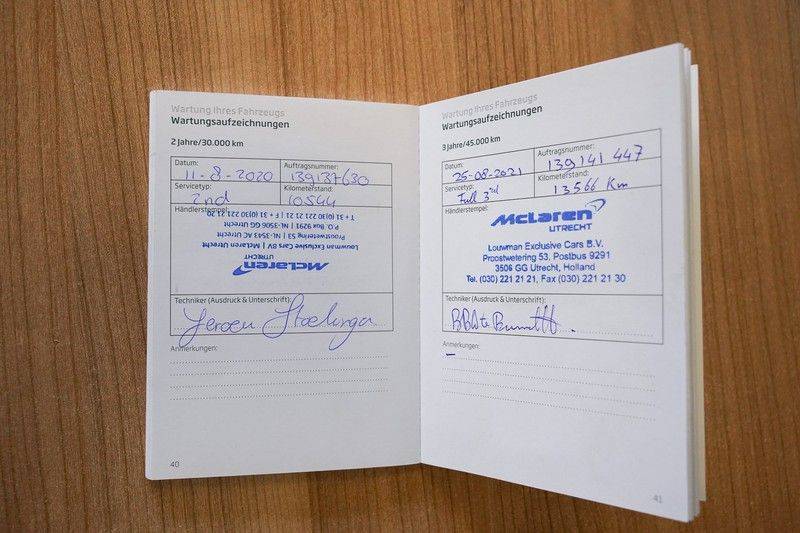 Wartung Ihres Fahrzeugs
Wartungsaufzeichnungen
2 Jahre/30.000 km
Datum:
11-8-2020
Auftragsnummer:
139137630
Servicetyp:
2nd
Kilometerstand:
10544
Händlerstempel:
McLaren
UTRECHT
Louwman Exclusive Cars BV | McLaren Utrecht
Proostwetering 53 | NL-3543 AC Utrecht
P.O. Box 9291 | NL-3506 GG Utrecht
T + 31 (0)30 221 21 21 | F + 31 (0)30 221 21 20
Techniker (Ausdruck & Unterschrift):
Jeroen
Anmerkungen:
40
Wartung Ihres Fahrzeugs
Wartungsaufzeichnungen
3 Jahre/45.000 km
Datum:
25-08-2021
Auftragsnummer:
139141 447
Servicetyp:
Full 3rd
Kilometerstand:
13566 Km
Händlerstempel:
McLaren
UTRECHT
Louwman Exclusive Cars B.V.
Proostwetering 53, Postbus 9291
3506 GG Utrecht, Holland
Tel. (030) 221 21 21, Fax (030) 221 21 30
Techniker (Ausdruck & Unterschrift):
Anmerkungen:
41